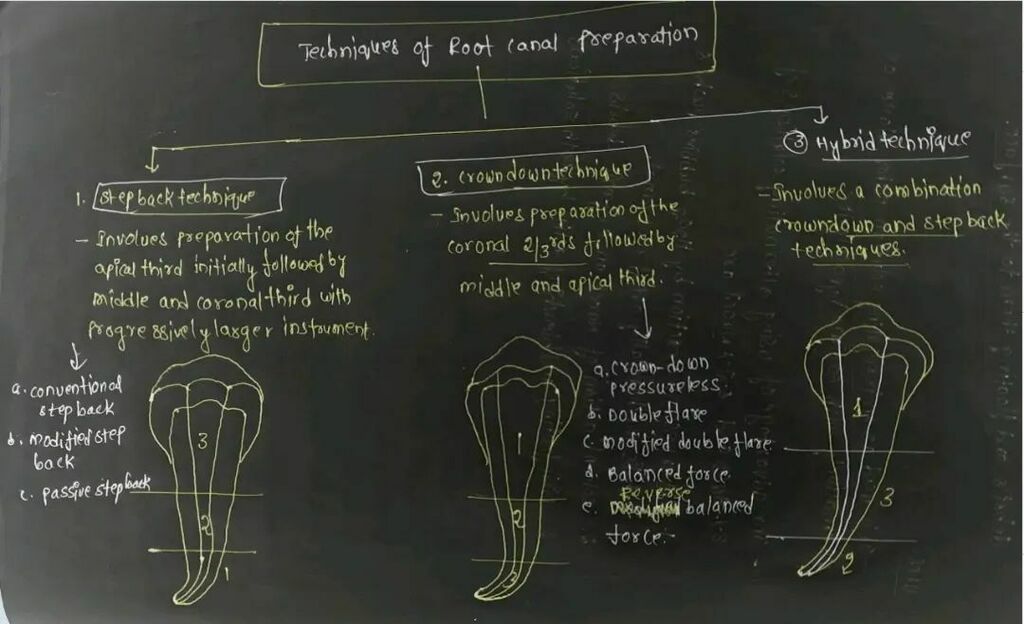 Techniques of Root canal Preparation
1. Stepback technique
- Involves preparation of the
apical third initially followed by
middle and coronal third with
progressively larger instrument.
a. conventional
step back
b. modified step
back
c. passive stepback
3
2
1
2. Crowndowntechnique
- Involves preparation of the
coronal 2/3rds followed by
middle and apical third.
a. crown-down
pressureless.
b. Double flare
c. modified double flare
d. Balanced force.
e. Reverse balanced
force.
1
2
3
③ Hybrid technique
- Involves a combination
crowndown and step back
techniques.
1
3
2